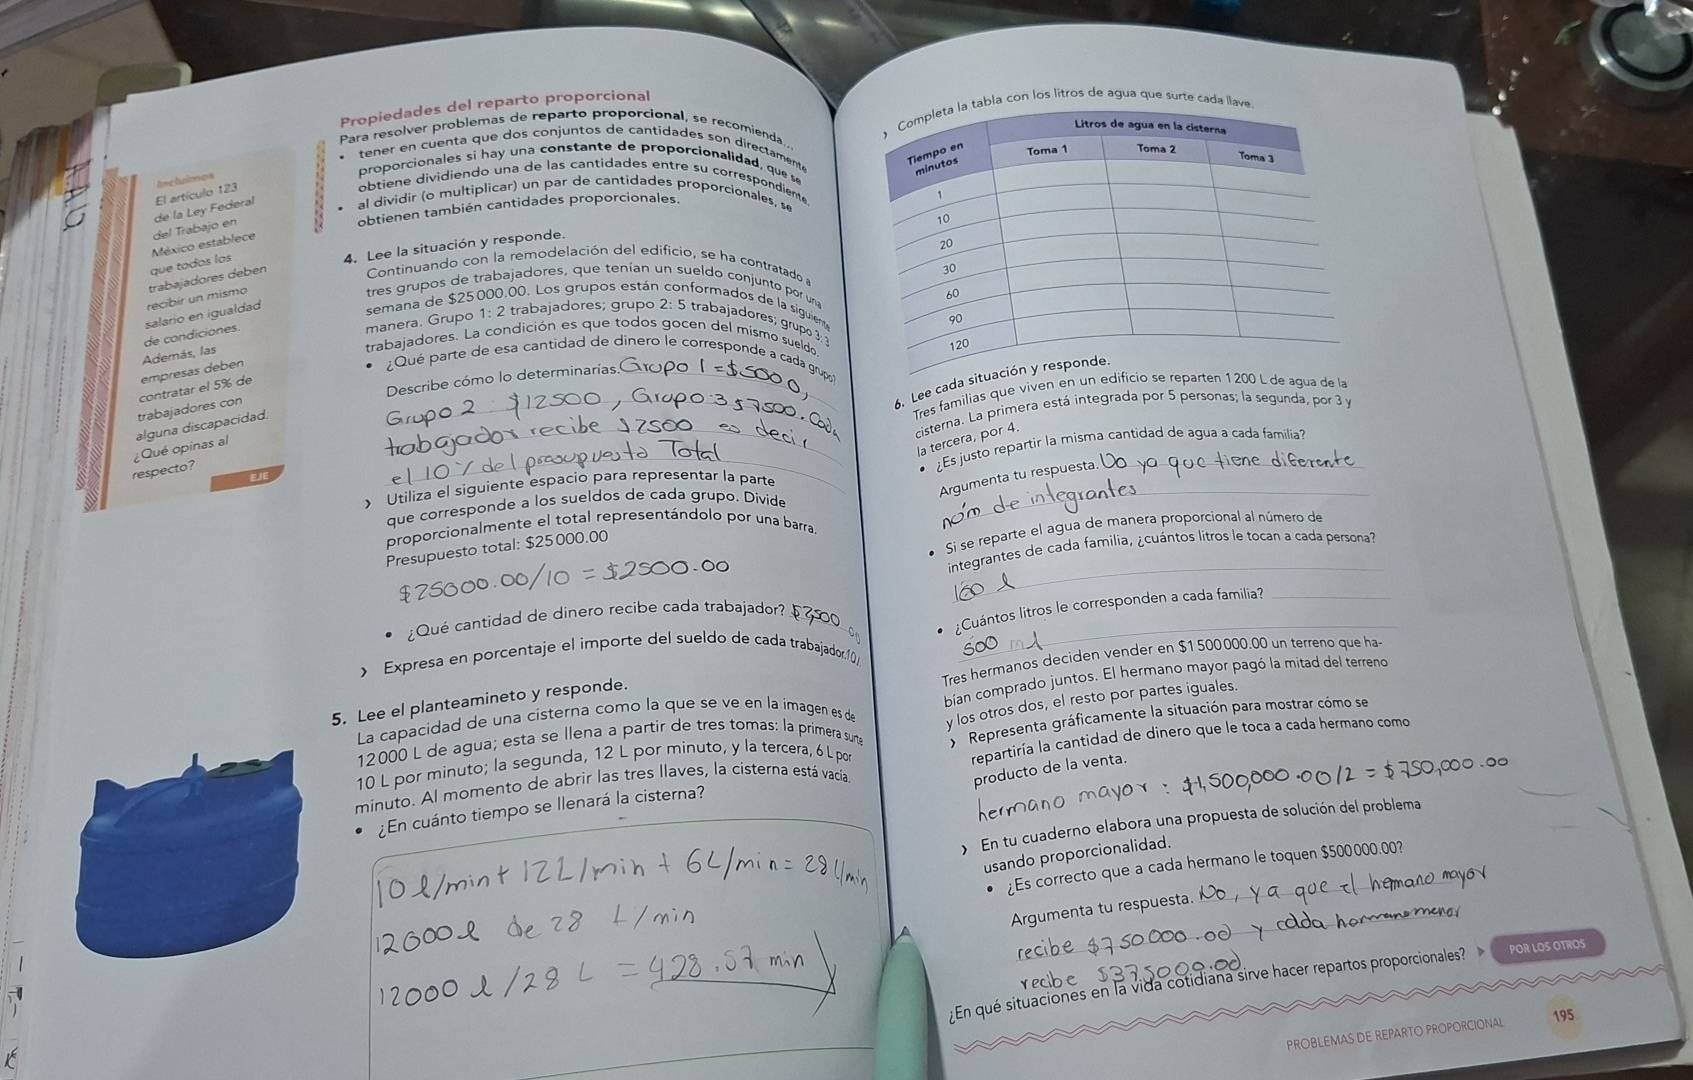 Propiedades del reparto proporcional
Para resolver problemas de reparto proporcional, se recomienda...
• tener en cuenta que dos conjuntos de cantidades son directamente
proporcionales si hay una constante de proporcionalidad, que se
obtiene dividiendo una de las cantidades entre su correspondiente.
• al dividir (o multiplicar) un par de cantidades proporcionales, se
obtienen también cantidades proporcionales.
Incluimos
El artículo 123
de la Ley Federal
del Trabajo en
México establece
que todos los
trabajadores deben
recibir un mismo
salario en igualdad
de condiciones.
Además, las
empresas deben
contratar el 5% de
trabajadores con
alguna discapacidad.
¿Qué opinas al
respecto?
EJE
4. Lee la situación y responde.
Continuando con la remodelación del edificio, se ha contratado a
tres grupos de trabajadores, que tenían un sueldo conjunto por una
semana de $25000.00. Los grupos están conformados de la siguiente
manera. Grupo 1: 2 trabajadores; grupo 2: 5 trabajadores; grupo 3: 3
trabajadores. La condición es que todos gocen del mismo sueldo.
• ¿Qué parte de esa cantidad de dinero le corresponde a cada grupo?
Describe cómo lo determinarías. Grupo 1 = $5000,
Grupo 2 $12500, Grupo 3 $7500. Cada
trabajador recibe $2500 es decir
el 10% del presupuesto Total
› Utiliza el siguiente espacio para representar la parte
que corresponde a los sueldos de cada grupo. Divide
proporcionalmente el total representándolo por una barra.
Presupuesto total: $25000.00
$25000.00/10 = $2500.00
• ¿Qué cantidad de dinero recibe cada trabajador? $2,500.00
› Expresa en porcentaje el importe del sueldo de cada trabajador. 10%
5. Lee el planteamineto y responde.
La capacidad de una cisterna como la que se ve en la imagen es de
12000 L de agua; esta se llena a partir de tres tomas: la primera surte
10 L por minuto; la segunda, 12 L por minuto, y la tercera, 6 L por
minuto. Al momento de abrir las tres llaves, la cisterna está vacía.
• ¿En cuánto tiempo se llenará la cisterna?
10 l/min + 12 L/min + 6 L/min = 28 l/min
12000 l de 28 L/min
12000 l /28 L = 428.57 min
› Completa la tabla con los litros de agua que surte cada llave.
Tiempo en minutos
Litros de agua en la cisterna
Toma 1 Toma 2 Toma 3
1
10
20
30
60
90
120
6. Lee cada situación y responde.
Tres familias que viven en un edificio se reparten 1200 L de agua de la
cisterna. La primera está integrada por 5 personas; la segunda, por 3 y
la tercera, por 4.
• ¿Es justo repartir la misma cantidad de agua a cada familia?
Argumenta tu respuesta. No ya que tiene diferente
núm de integrantes
• Si se reparte el agua de manera proporcional al número de
integrantes de cada familia, ¿cuántos litros le tocan a cada persona?
• ¿Cuántos litros le corresponden a cada familia?
500 ml
Tres hermanos deciden vender en $1500000.00 un terreno que ha-
bían comprado juntos. El hermano mayor pagó la mitad del terreno
y los otros dos, el resto por partes iguales.
› Representa gráficamente la situación para mostrar cómo se
repartiría la cantidad de dinero que le toca a cada hermano como
producto de la venta.
hermano mayor: $1,500,000.00/2 = $750,000.00
› En tu cuaderno elabora una propuesta de solución del problema
usando proporcionalidad.
• ¿Es correcto que a cada hermano le toquen $500000.00?
Argumenta tu respuesta. No, ya que el hemano mayor
recibe $750000.00 y cada hermano menor
recibe $375000.00
¿En qué situaciones en la vida cotidiana sirve hacer repartos proporcionales?
POR LOS OTROS
PROBLEMAS DE REPARTO PROPORCIONAL 195